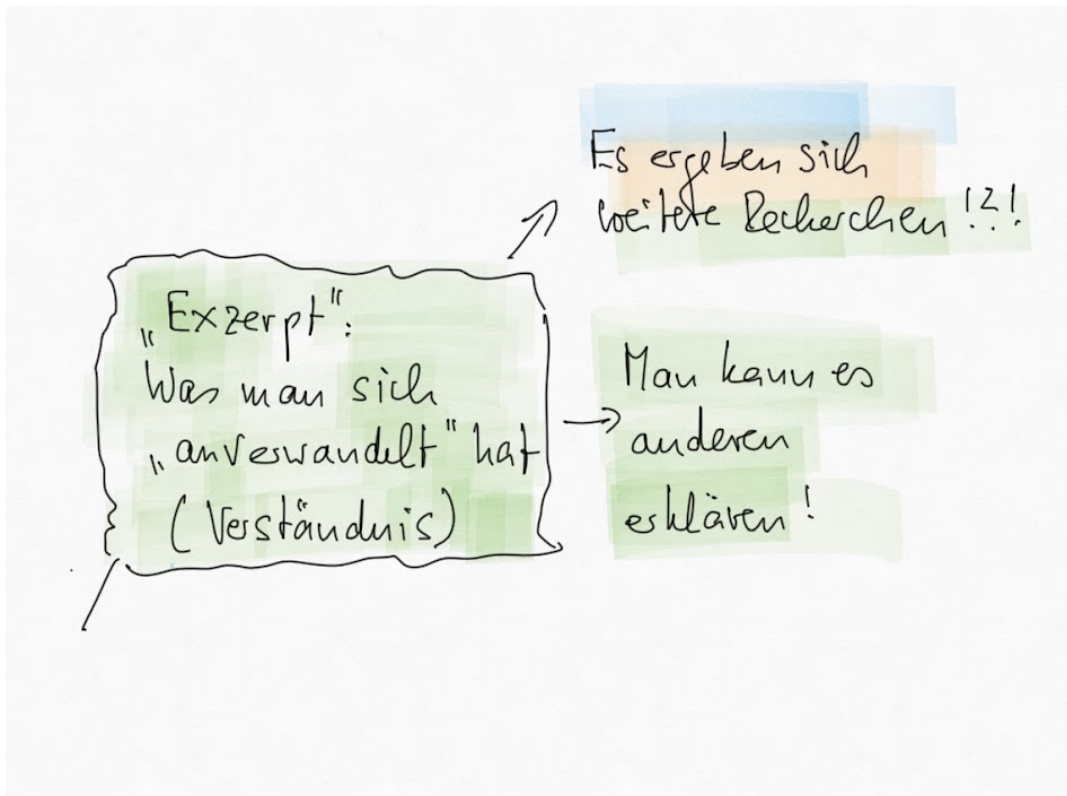 „Exzerpt“:
Was man sich
„anverwandelt“ hat
(Verständnis)
Es ergeben sich
weitere Recherchen!?!
Man kann es
anderen
erklären!